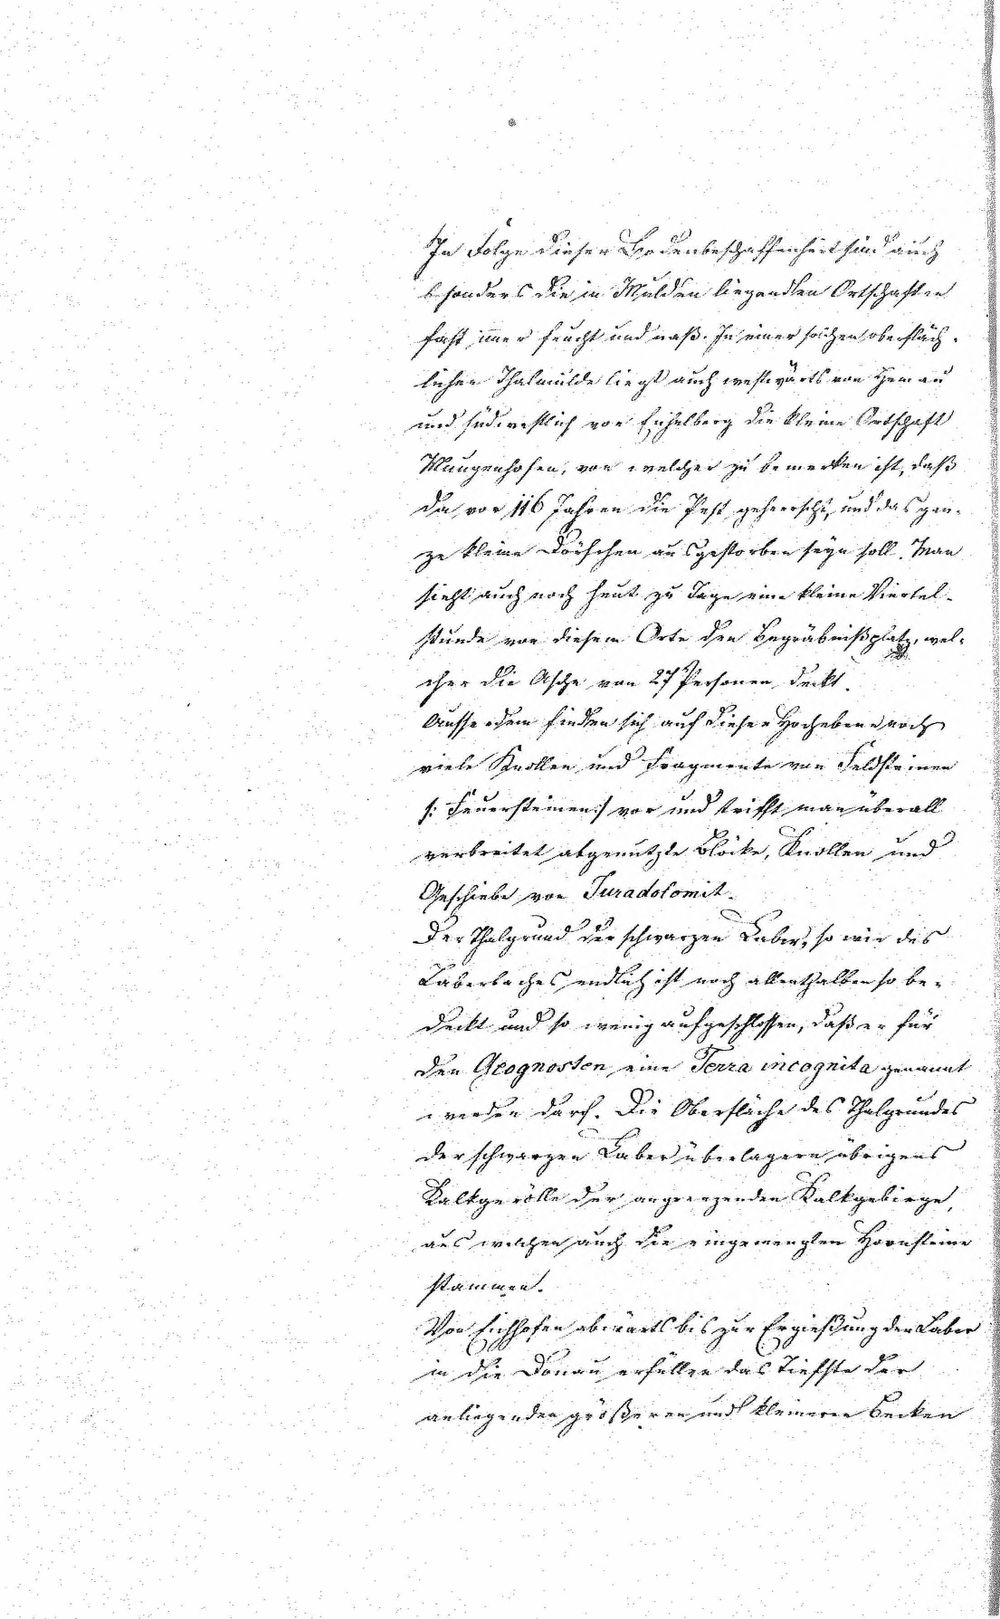 In Folge dieser Bodenbeschaffenheit sind auch
besonders die in Mulden liegenden Ortschaften
fast immer feucht und naß. In einer solchen oberfläch-
lichen Thalmulde liegt auch westwärts von Hemau
und südwestlich von Eichelberg die kleine Ortschaft
Mungenhofen, von welcher zu bemerken ist, daß
da vor 116 Jahren die Pest geherrscht, und das gan-
ze kleine Dörfchen ausgestorben seyn soll. Man
sieht auch noch heut zu Tage eine kleine Viertel-
stunde von diesem Orte den Begräbnißplatz, wel-
cher die Asche von 27 Personen deckt.
Ausserdem finden sich auf dieser Hochebene noch
viele Knollen und Fragmente von Feldsteinen
/: Feuersteinen :/ vor und trifft man überall
verbreitet abgenutzte Blöcke, Knollen und
Geschiebe von Juradolomit.
Der Thalgrund der schwarzen Laber, so wie des
Laberbaches endlich ist noch allenthalben so be-
deckt und so wenig aufgeschlossen, daß er für
den Geognosten eine Terra incognita genannt
werden darf. Die Oberfläche des Thalgrundes
der schwarzen Laber überlagern übrigens
Kalkgerölle der angrenzenden Kalkgebirge,
aus welchen auch die eingemengten Hornsteine
stammen.
Von Eichhofen abwärts bis zur Ergießung der Laber
in die Donau erfüllen das Tiefste der
anliegenden größeren und kleineren Becken